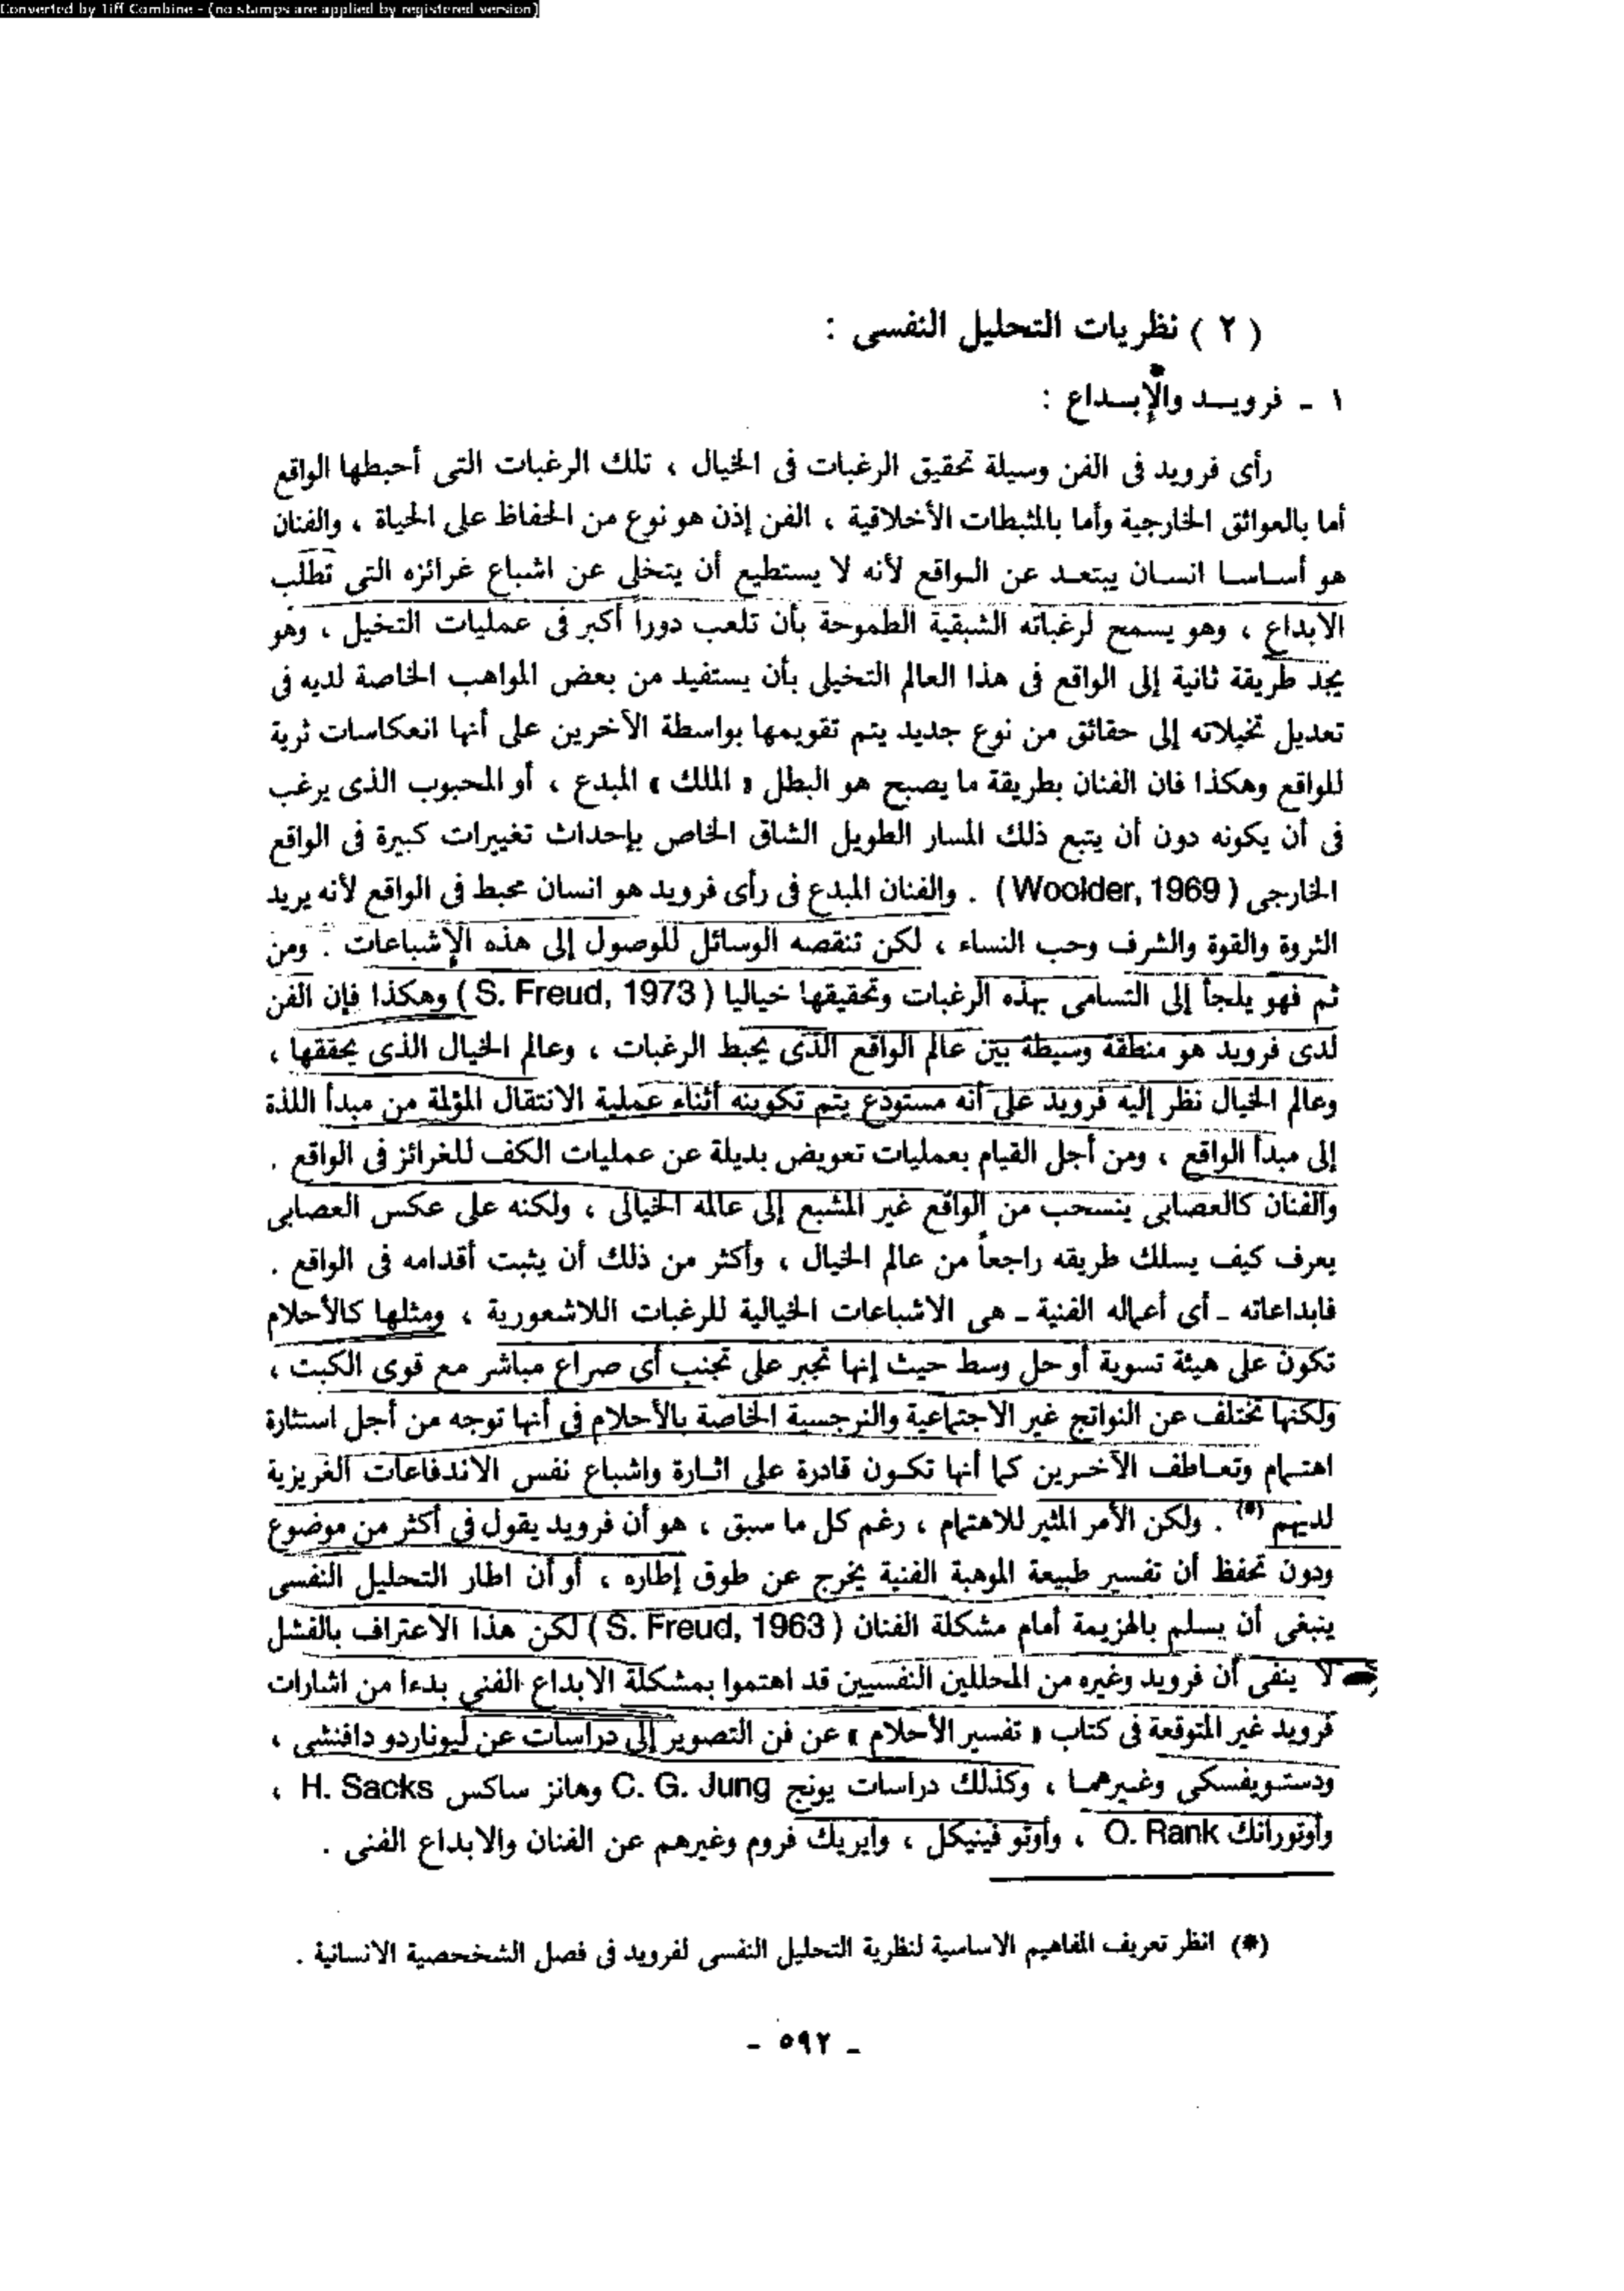 Converted by Tiff Combine - (no stamps are applied by registered version)
( ٢ ) نظريات التحليل النفسى :
١ - فرويـــد والإبـــداع :
رأى فرويد فى الفن وسيلة تحقيق الرغبات فى الخيال ، تلك الرغبات التى أحبطها الواقع
أما بالعوائق الخارجية وأما بالمثبطات الأخلاقية ، الفن إذن هو نوع من الحفاظ على الحياة ، والفنان
هو أساسا انسان يبتعد عن الواقع لأنه لا يستطيع أن يتخلى عن اشباع غرائزه التى تطلب
الابداع ، وهو يسمح لرغباته الشبقية الطموحة بأن تلعب دوراً أكبر فى عمليات التخيل ، وهو
يجد طريقة ثانية إلى الواقع فى هذا العالم التخيلى بأن يستفيد من بعض المواهب الخاصة لديه فى
تعديل تخيلاته إلى حقائق من نوع جديد يتم تقويمها بواسطة الآخرين على أنها انعكاسات ثرية
للواقع وهكذا فان الفنان بطريقة ما يصبح هو البطل « الملك » المبدع ، أو المحبوب الذى يرغب
فى أن يكونه دون أن يتبع ذلك المسار الطويل الشاق الخاص بإحداث تغييرات كبيرة فى الواقع
الخارجى ( Woolder, 1969 ) . والفنان المبدع فى رأى فرويد هو انسان محبط فى الواقع لأنه يريد
الثروة والقوة والشرف وحب النساء ، لكن تنقصه الوسائل للوصول إلى هذه الإشباعات . ومن
ثم فهو يلجأ إلى التسامى بهذه الرغبات وتحقيقها خياليا ( S. Freud, 1973 ) وهكذا فإن الفن
لدى فرويد هو منطقة وسيطة بين عالم الواقع الذى يحبط الرغبات ، وعالم الخيال الذى يحققها ،
وعالم الخيال نظر إليه فرويد على أنه مستودع يتم تكوينه أثناء عملية الانتقال المؤلمة من مبدأ اللذة
إلى مبدأ الواقع ، ومن أجل القيام بعمليات تعويض بديلة عن عمليات الكف للغرائز فى الواقع .
والفنان كالعصابى ينسحب من الواقع غير المشبع إلى عالمه الخيالى ، ولكنه على عكس العصابى
يعرف كيف يسلك طريقه راجعاً من عالم الخيال ، وأكثر من ذلك أن يثبت أقدامه فى الواقع .
فابداعاته - أى أعماله الفنية - هى الاشباعات الخيالية للرغبات اللاشعورية ، ومثلها كالأحلام
تكون على هيئة تسوية أو حل وسط حيث إنها تجبر على تجنب أى صراع مباشر مع قوى الكبت ،
ولكنها تختلف عن النواتج غير الاجتماعية والنرجسية الخاصة بالأحلام فى أنها توجه من أجل استثارة
اهتمام وتعاطف الآخرين كما أنها تكون قادرة على اثارة واشباع نفس الاندفاعات الغريزية
لديهم (*) . ولكن الأمر المثير للاهتمام ، رغم كل ما سبق ، هو أن فرويد يقول فى أكثر من موضوع
ودون تحفظ أن تفسير طبيعة الموهبة الفنية يخرج عن طوق إطاره ، أو أن اطار التحليل النفسى
ينبغى أن يسلم بالهزيمة أمام مشكلة الفنان ( S. Freud, 1963 ) لكن هذا الاعتراف بالفشل
لا ينفى أن فرويد وغيره من المحللين النفسيين قد اهتموا بمشكلة الابداع الفنى بدءا من اشارات
فرويد غير المتوقعة فى كتاب « تفسير الأحلام » عن فن التصوير إلى دراسات عن ليوناردو دافنشى ،
ودستويفسكى وغيرهما ، وكذلك دراسات يونج C. G. Jung وهانز ساكس H. Sacks ،
وأوتورانك O. Rank ، وأوتو فينيكل ، وايريك فروم وغيرهم عن الفنان والابداع الفنى .
(*) انظر تعريف المفاهيم الاساسية لنظرية التحليل النفسى لفرويد فى فصل الشخصية الانسانية .
- ٥٩٢ -